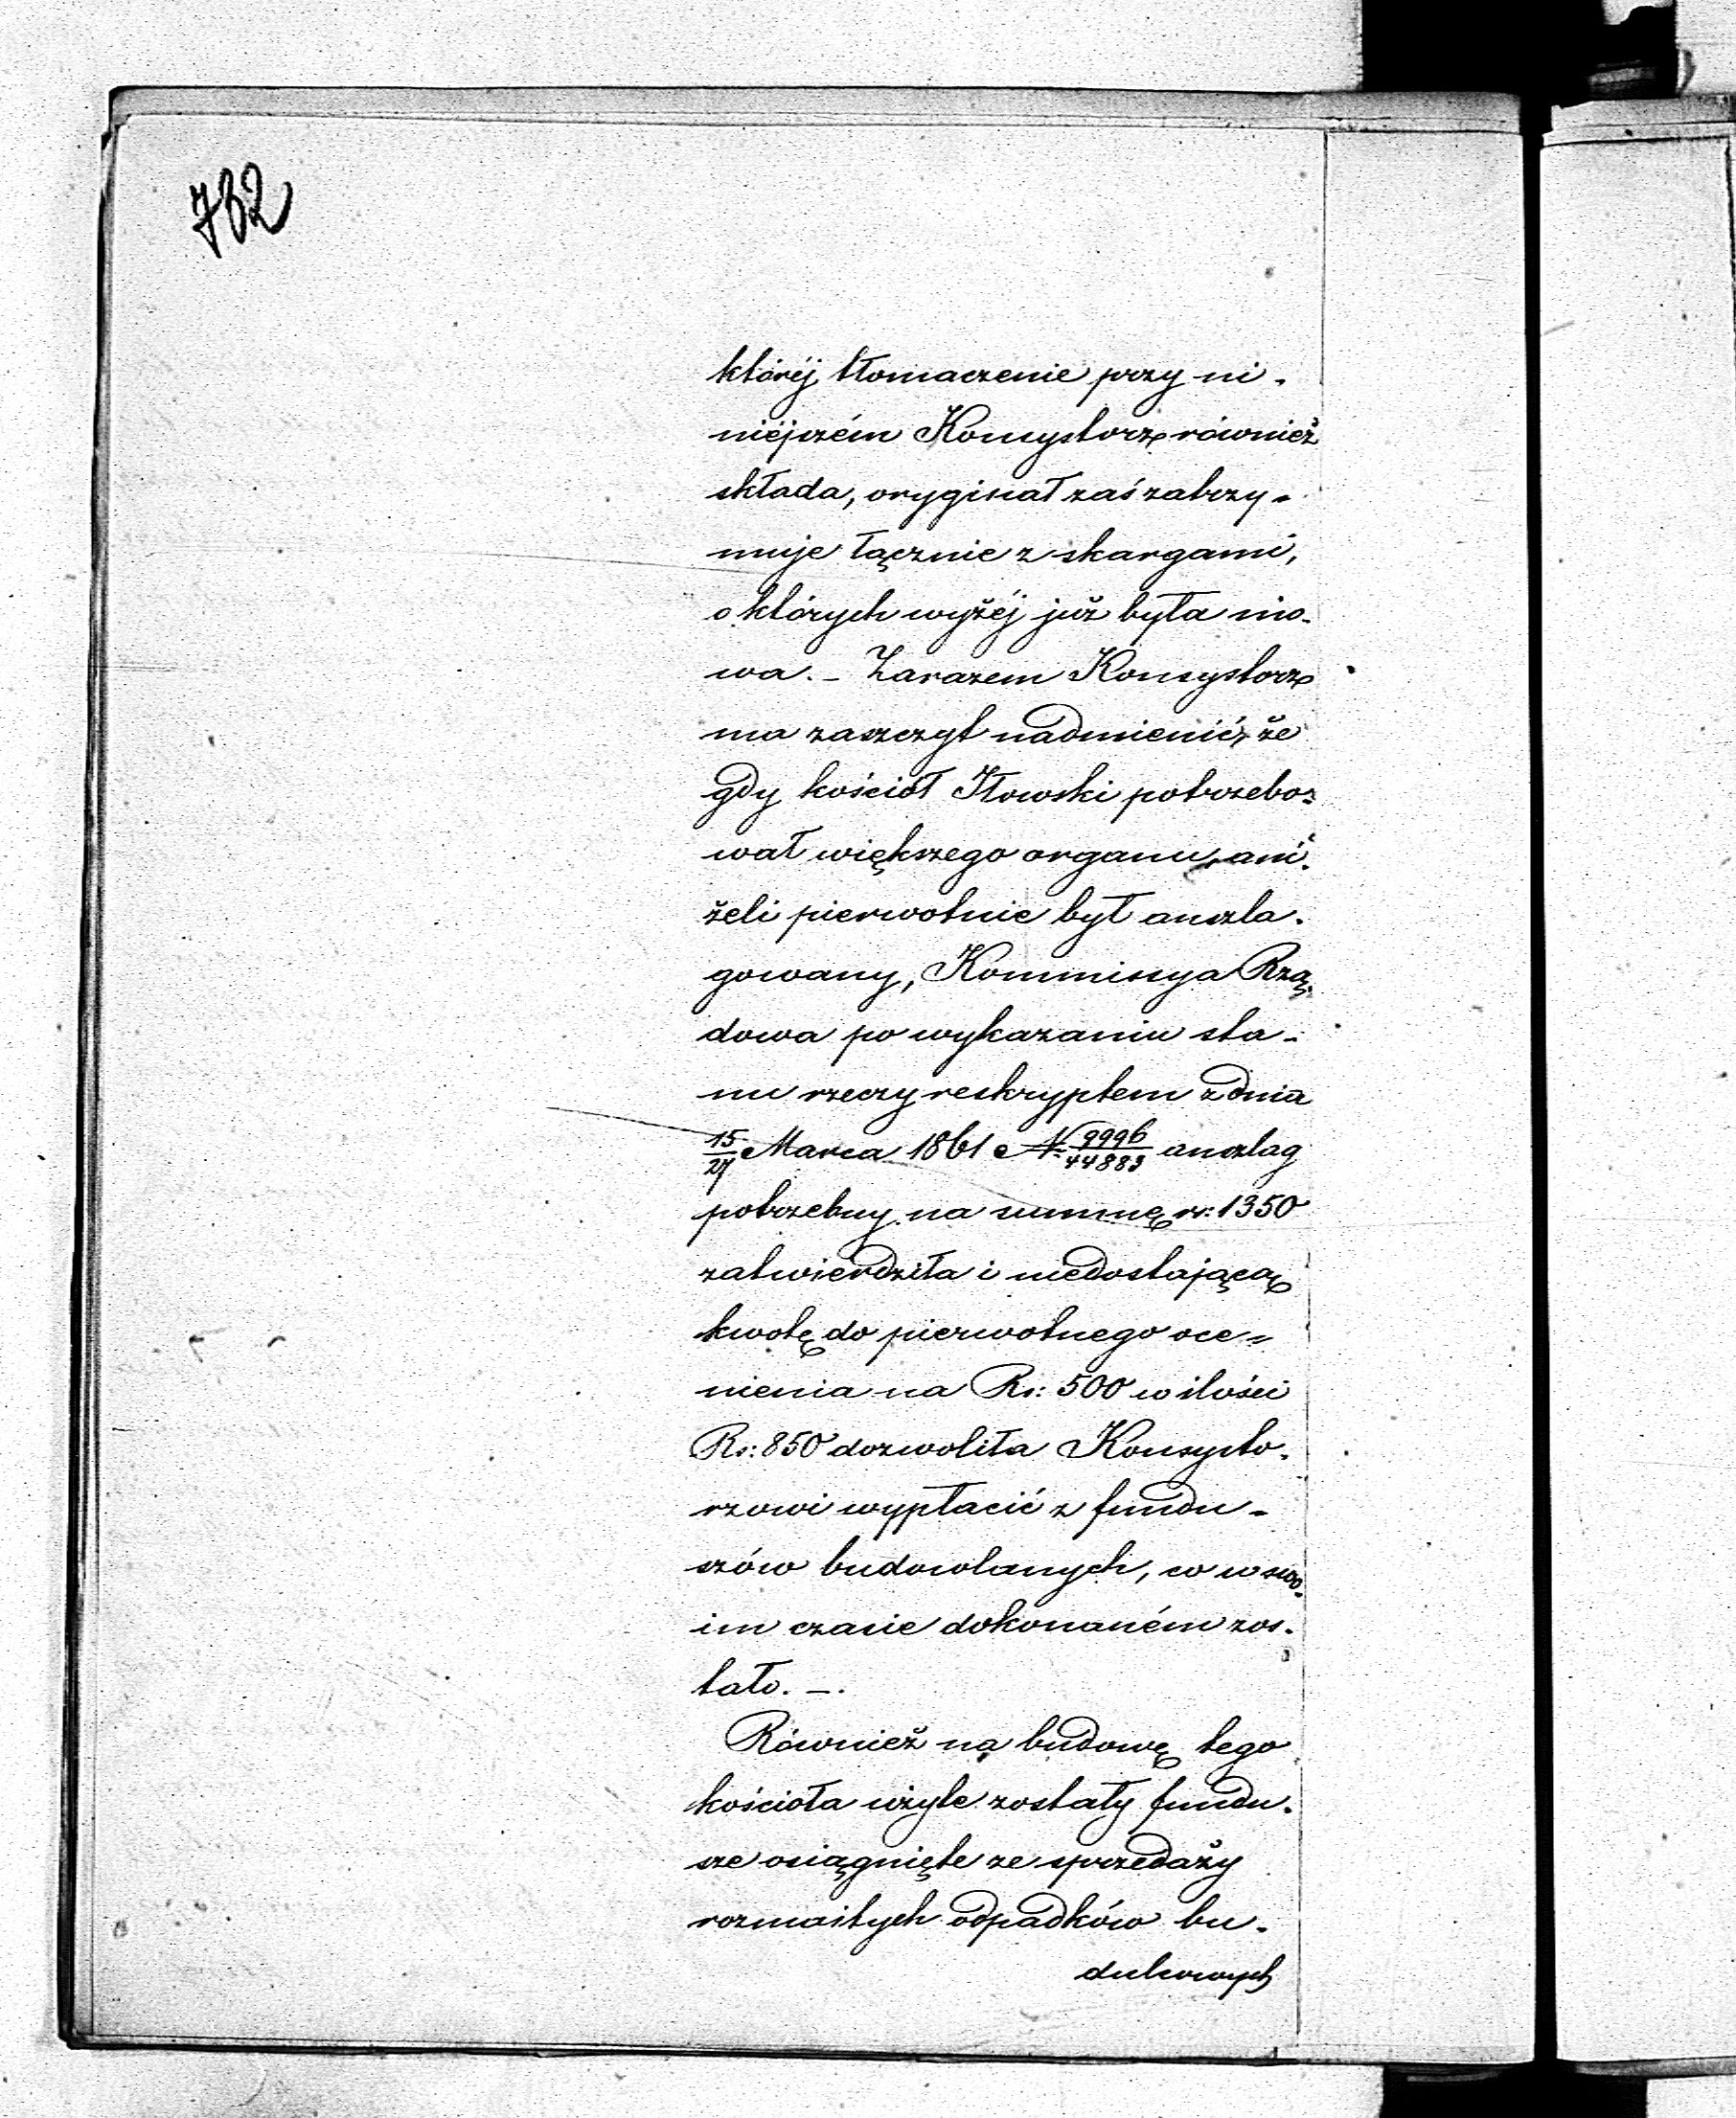 732
któréj tłomaczenie przy ni-
niéjszém Konsystorz również
składa, oryginał zaś zatrzy-
muje łącznie z skargami,
o których wyżéj już była mo-
wa. - Zarazem Konsystorz
ma zaszczyt nadmienić, że
gdy kościół Iłowski potrzebo-
wał większego organu, ani-
żeli pierwotnie był anszla-
gowany, Kommissya Rzą-
dowa po wykazaniu sta-
nu rzeczy reskryptem z dnia
15/27 Marca 1861 N: 9996/44883 anszlag
potrzebny na summę rs: 1350
zatwierdziła i niedostającą
kwotę do pierwotnego oce-
nienia na Rs: 500 w ilości
Rs: 850 dozwoliła Konsysto-
rzowi wypłacić z fundu-
szów budowlanych, co w swo-
im czasie dokonaném zos-
tało. -.
Również na budowę tego
kościoła użyte zostały fundu-
sze osiągnięte ze sprzedaży
rozmaitych odpadków bu-